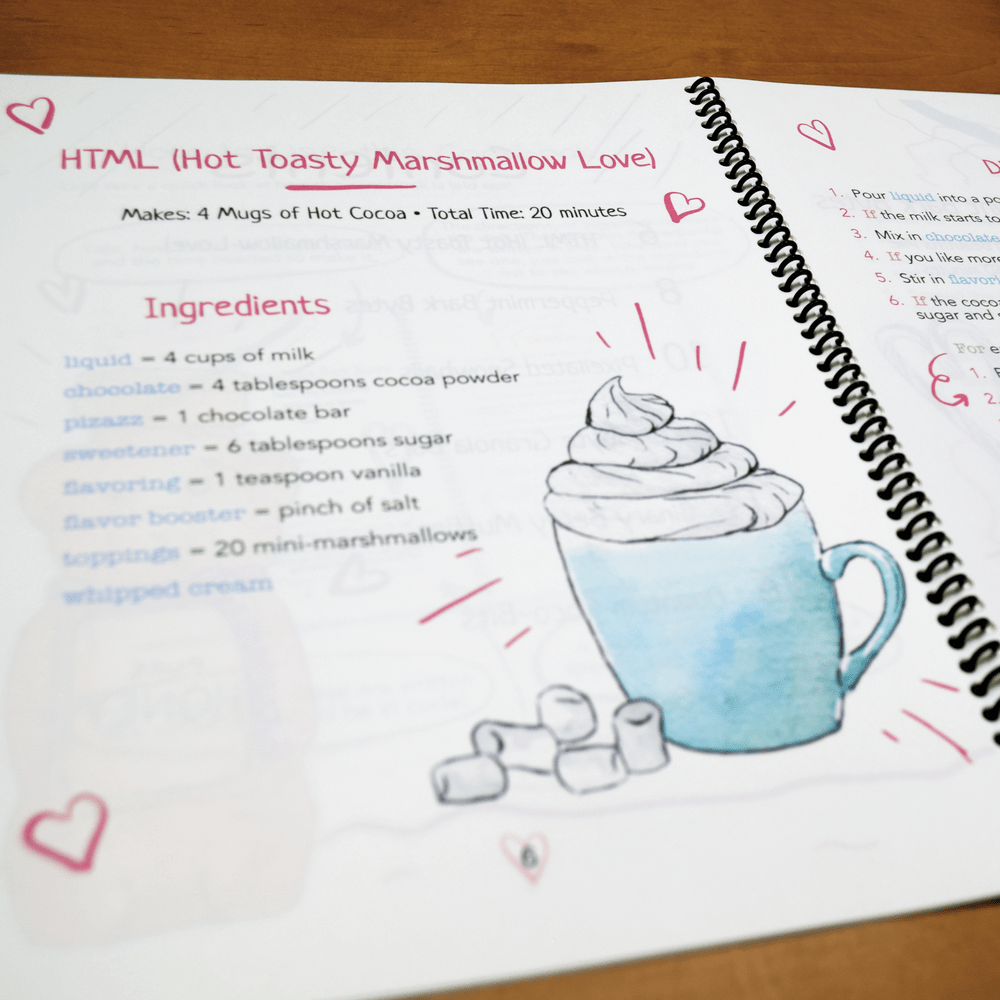 HTML (Hot Toasty Marshmallow Love)
Makes: 4 Mugs of Hot Cocoa • Total Time: 20 minutes
Ingredients
liquid = 4 cups of milk
chocolate = 4 tablespoons cocoa powder
pizazz = 1 chocolate bar
sweetener = 6 tablespoons sugar
flavoring = 1 teaspoon vanilla
flavor booster = pinch of salt
toppings = 20 mini-marshmallows
whipped cream
6
1. Pour liquid into a
2. If the milk starts to
3. Mix in chocolate
4. If you like more
5. Stir in
6. If the
sugar and
For
1.
2.